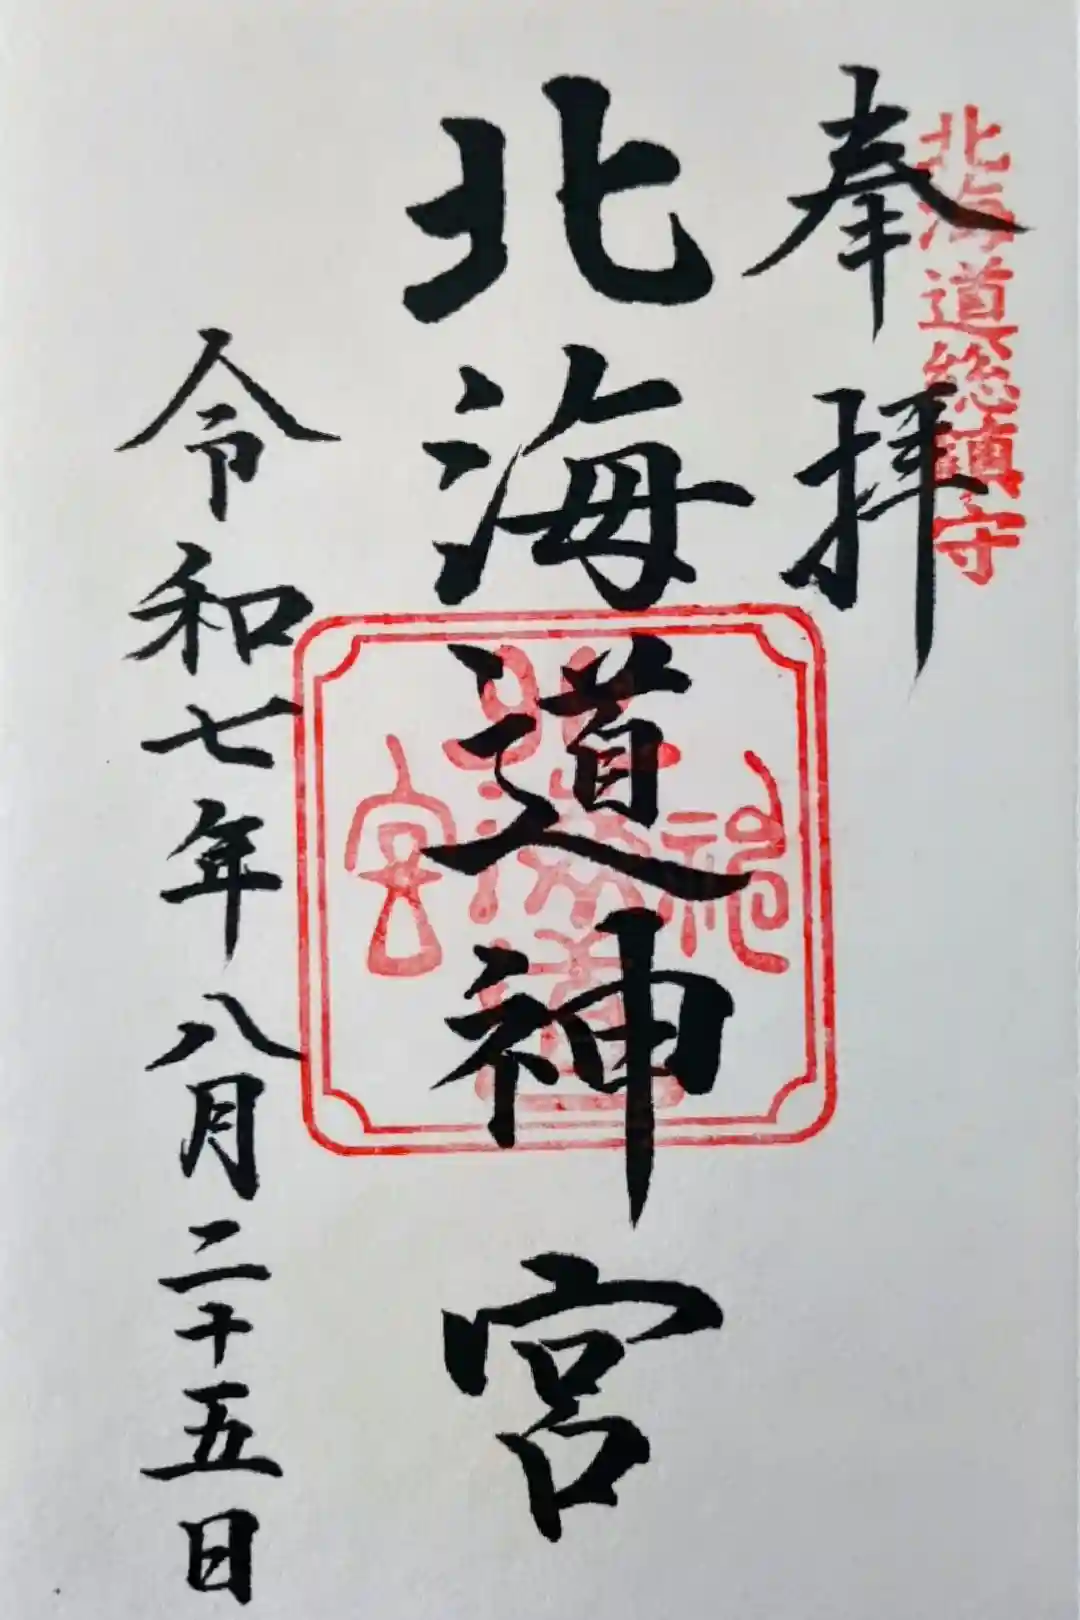 北海道総鎮守
奉拝
北海道神宮
北海道
神
宮
令和七年八月二十五日